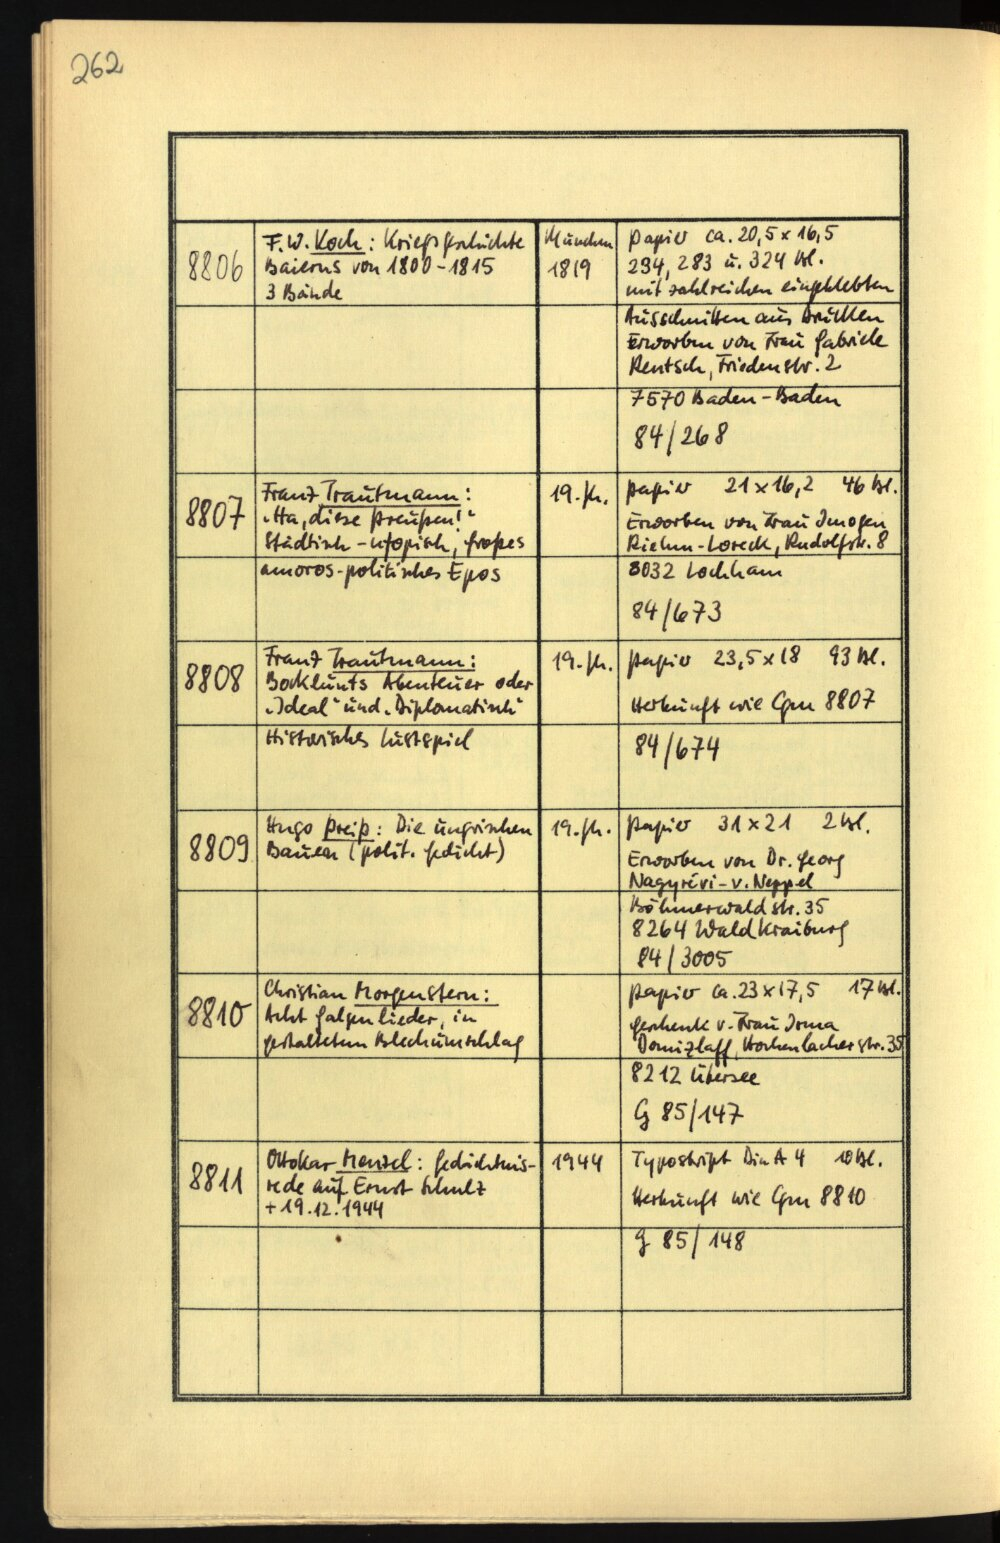 262
8806
F.W. Koch: Kriegsgeschichte
Baierns von 1800-1815
3 Bände
München
1819
Papier ca. 20,5 x 16,5
294, 283 u. 324 Bl.
mit zahlreichen eingeklebten
Ausschnitten aus Drucken
Erworben von Frau Gabriele
Rentsch, Friedenstr. 2
7570 Baden-Baden
84/268
8807
Franz Trautmann:
"Ha, diese Preußen!"
Städtisch-utopisch, großes
amoros-politisches Epos
19. Jh.
Papier 21 x 16,2 46 Bl.
Erworben von Frau Imogen
Riehm-Loreck, Rudolfstr. 8
8032 Lochham
84/673
8808
Franz Trautmann:
Abenteuer oder
"Ideal" und "Diplomatisch"
Historisches Lustspiel
19. Jh.
Papier 23,5 x 18 93 Bl.
Herkunft wie Cgm 8807
84/674
8809
Hugo Preiß: Die ungrischen
Bauern (polit. Gedicht)
19. Jh.
Papier 31 x 21 2 Bl.
Erworben von Dr. Georg
Nagyrévi-v. Neppel
Böhmerwaldstr. 35
8264 Waldkraiburg
84/3005
8810
Christian Morgenstern:
Acht Galgenlieder, in
gestaltetem Blechumschlag
Papier ca. 23 x 17,5 17 Bl.
Geschenk v. Frau Irma
Domizlaff, 35
8212 Übersee
G 85/147
8811
Ottokar Menzel: Gedächtnis-
rede auf Ernst Schulz
+ 19.12.1944
1944
Typoskript Din A 4 10 Bl.
Herkunft wie Cgm 8810
G 85/148